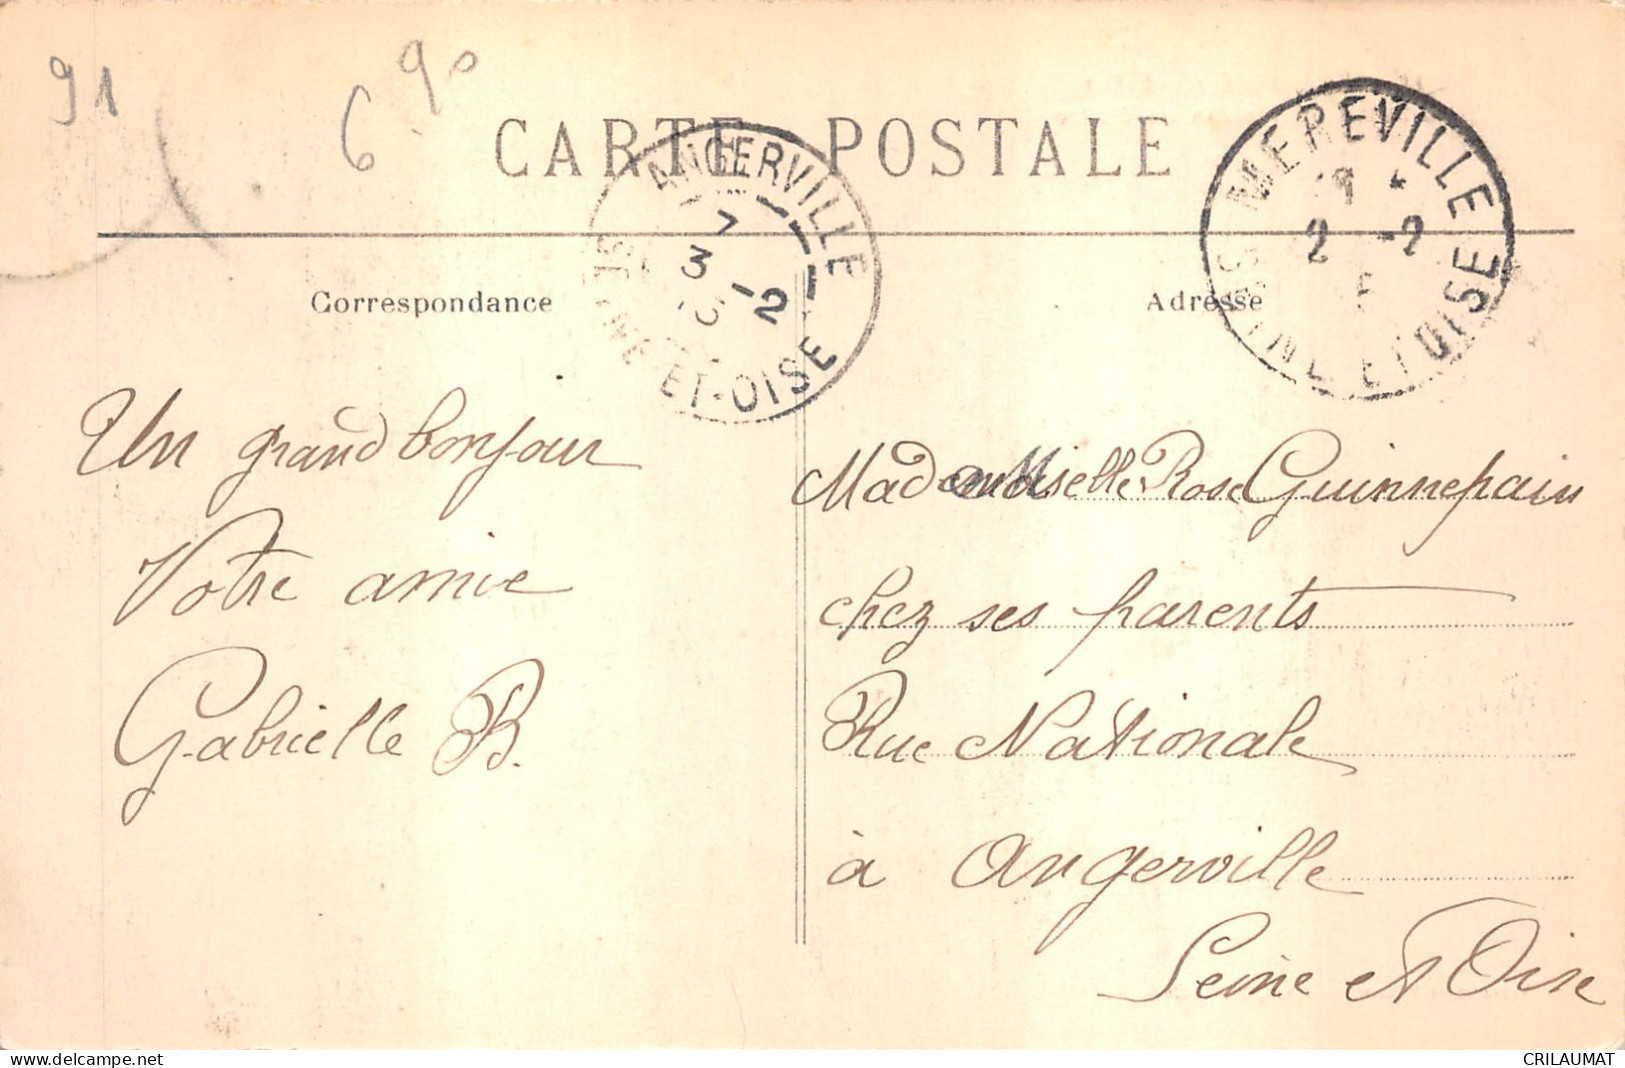 91
6.90
CARTE POSTALE
ANGERVILLE
7
3 -2
SEINE-ET-OISE
MEREVILLE
2 -2
SEINE ET OISE
Correspondance
Adresse
Un grand bonjour
Votre amie
Gabrielle B.
Mademoiselle Rose Guinnepain
chez ses parents
Rue Nationale
à Angerville
Seine et Oise
delcampe.net
CRILAUMAT